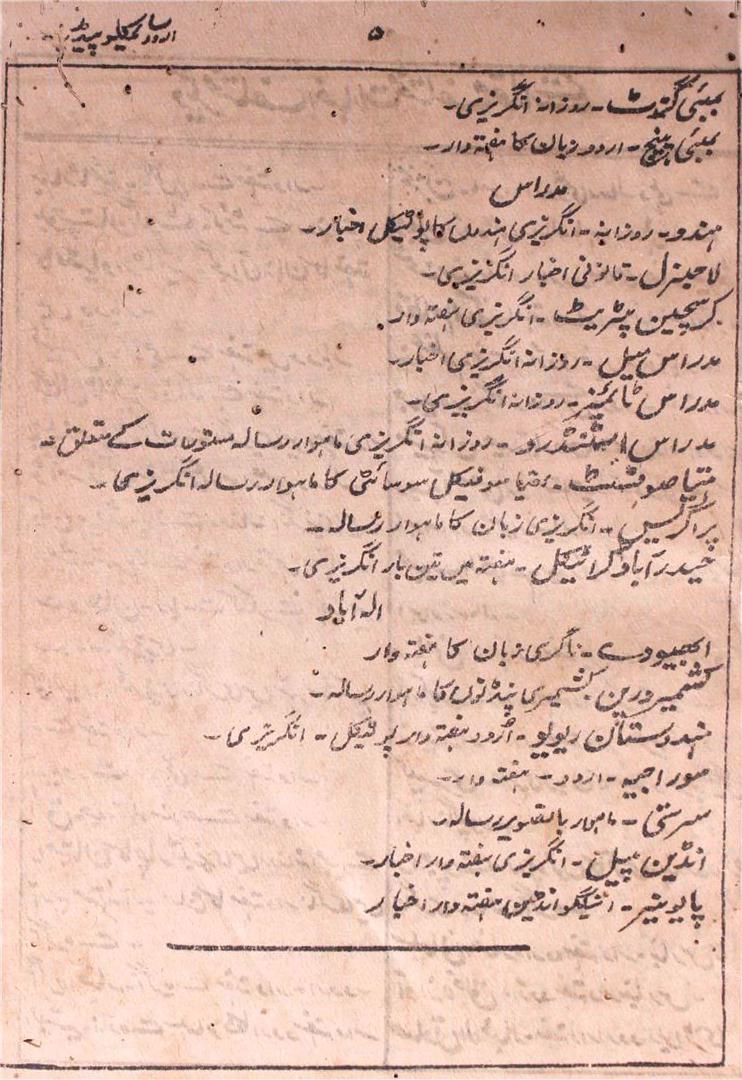 ۵
اردو سائیکلو پیڈیا
بمبئی گزٹ - روزانہ انگریزی۔
بمبئی پنچ - اردو زبان کا ہفتہ وار۔
مدراس
ہندو - روزانہ - انگریزی ہندوں کا پولٹیکل اخبار۔
لا جرنل - قانونی اخبار انگریزی۔
کرسچین پیٹریٹ - انگریزی ہفتہ وار۔
مدراس میل - روزانہ انگریزی اخبار۔
مدراس ٹائمز - روزانہ انگریزی۔
مدراس اسٹنڈرڈ - روزانہ انگریزی ماہوار رسالہ مستورات کے متعلق۔
تھیاسوفسٹ - تھیاسوفیکل سوسائٹی کا ماہوار رسالہ انگریزی۔
پراگریس - انگریزی زبان کا ماہوار رسالہ۔
حیدرآباد کرانیکل - ہفتہ میں تین بار انگریزی۔
الہ آباد
ابھیودے - ناگری زبان کا ہفتہ وار
کشمیر درپن کشمیری پنڈتوں کا ماہوار رسالہ۔
ہندوستان ریویو - اردو ہفتہ وار پولٹیکل - انگریزی۔
سوراجیہ - اردو - ہفتہ وار۔
سرستی - ماہوار باتصویر رسالہ۔
انڈین پیپل - انگریزی ہفتہ وار اخبار۔
پایونیر - انیگلو انڈین ہفتہ وار اخبار